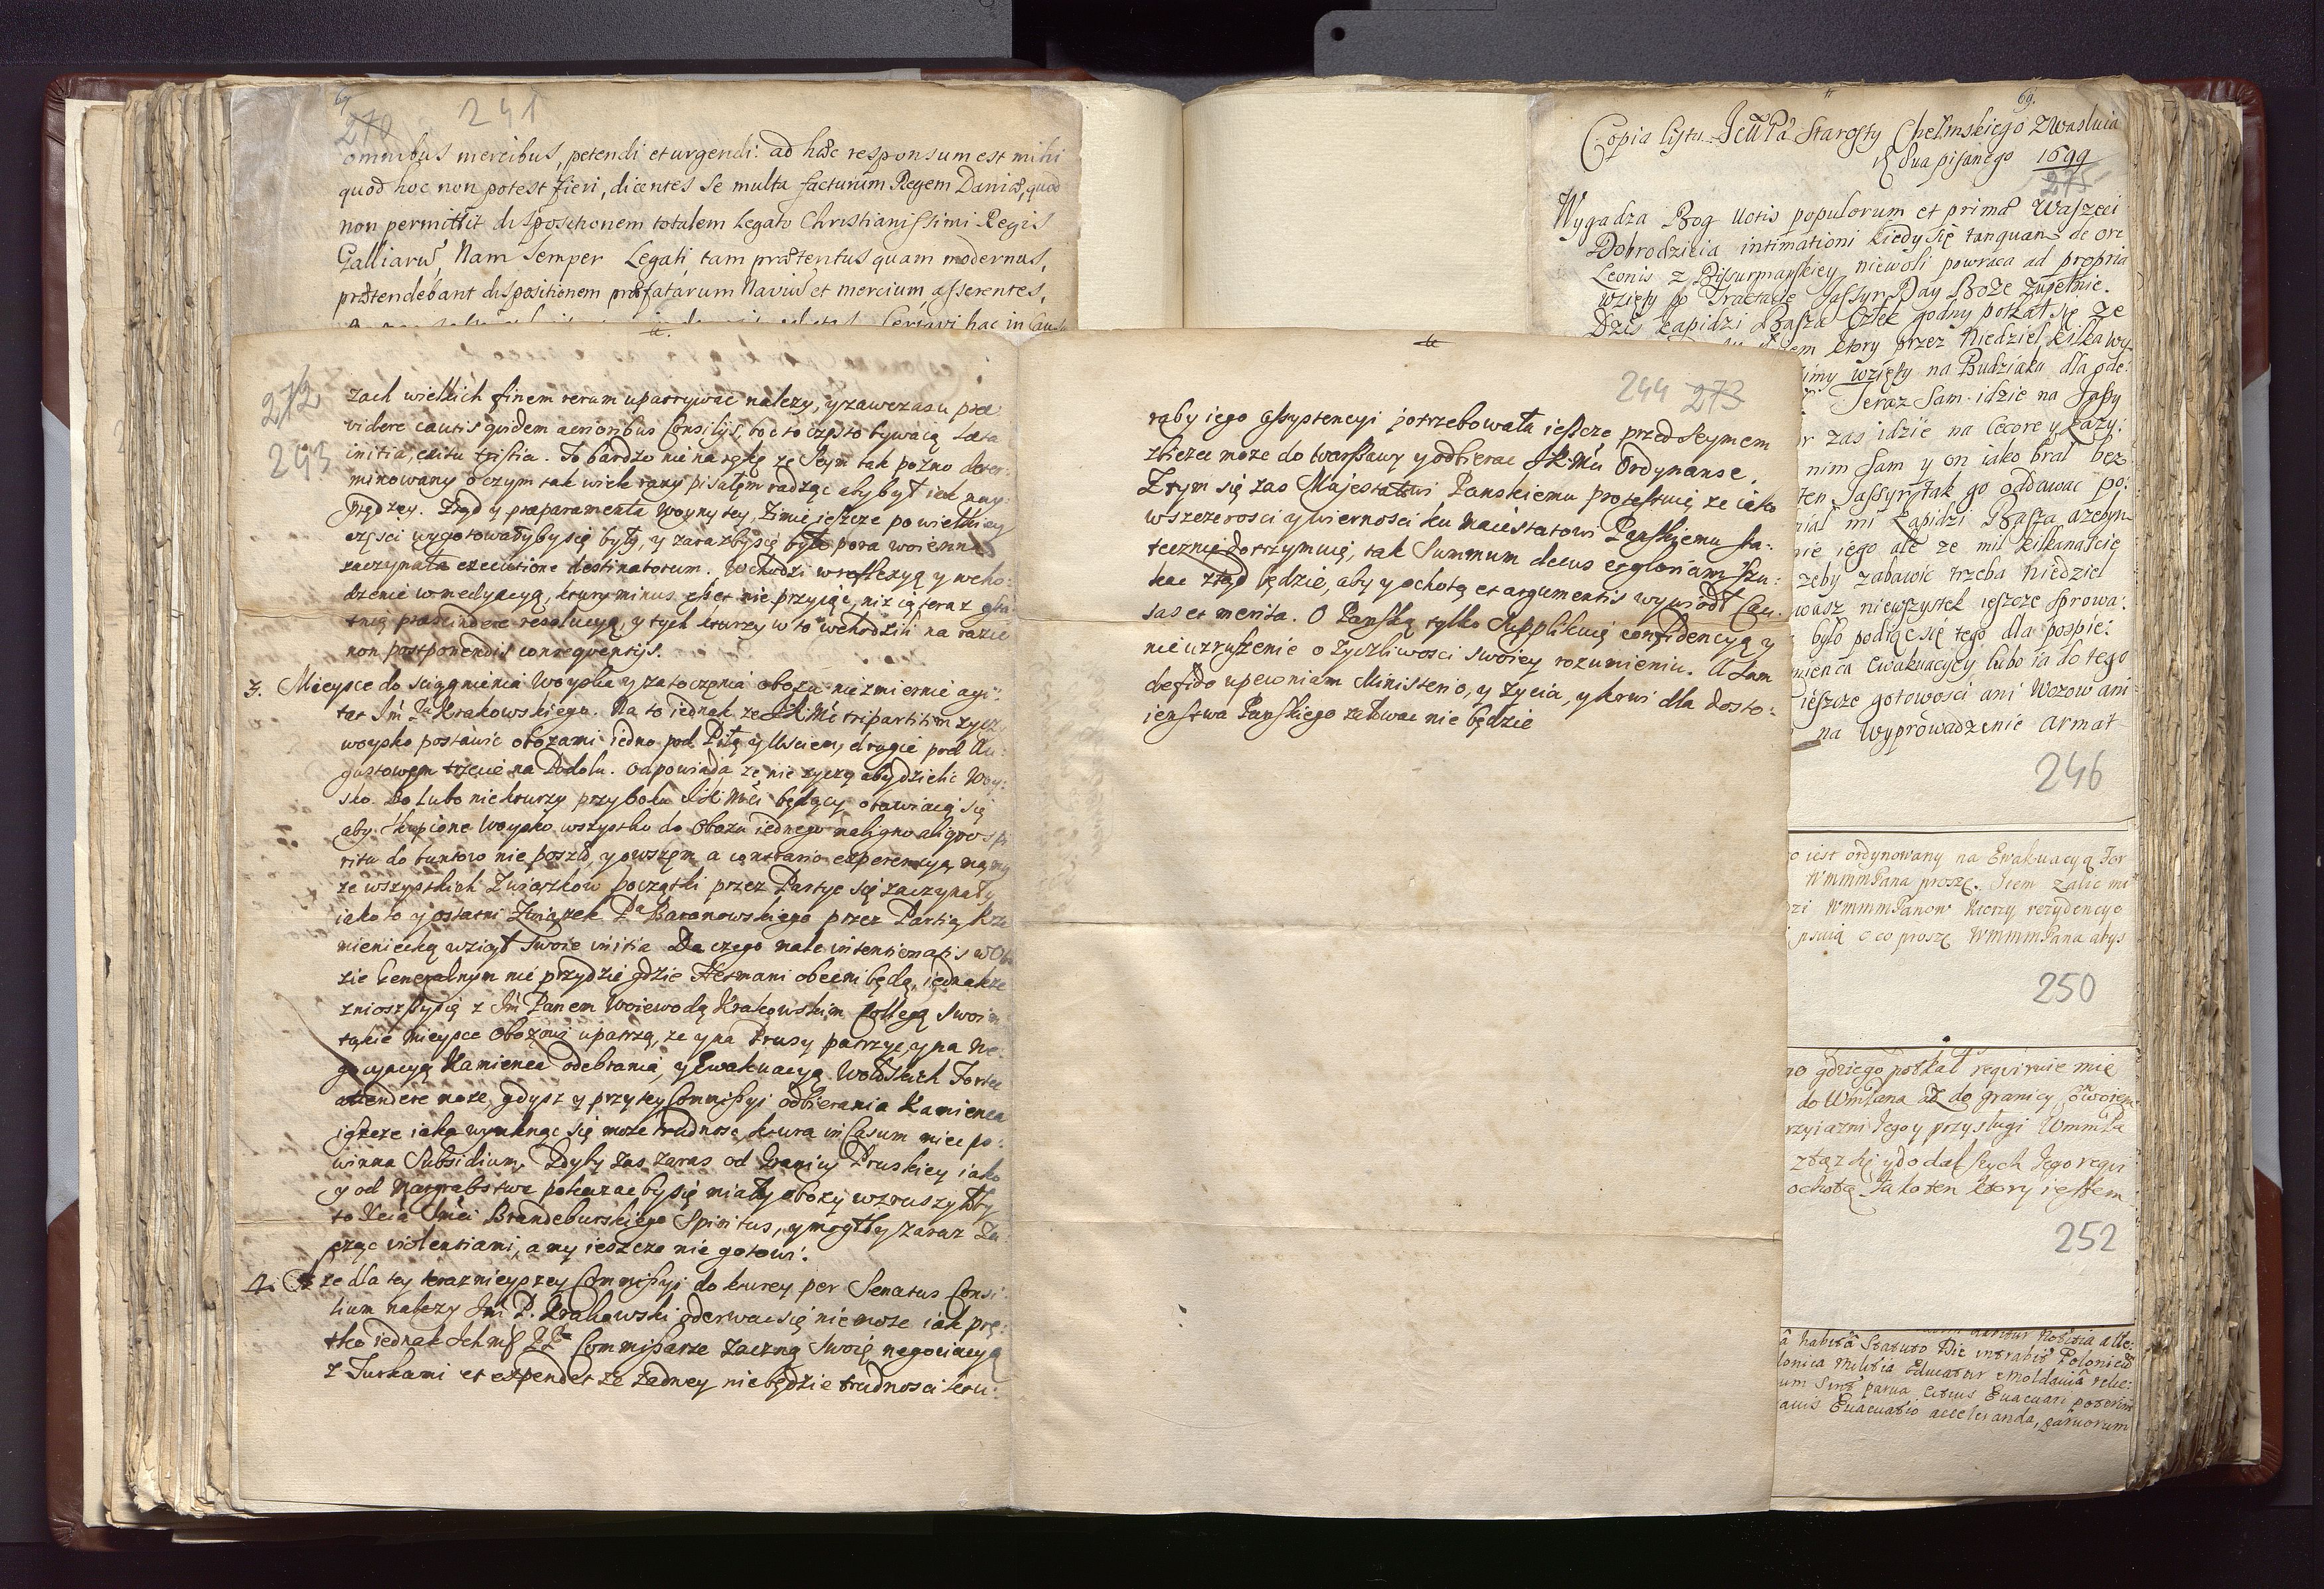 69
270 241
omnibus mercibus, petendi et urgendi: ad hæc responsum est mihi
quod hoc non potest fieri, dicentes se multa facturum Regem Daniæ, quod
non permittit dispositionem totalem Legato Christianissimi Regis
Galliarũ, Nam semper Legati, tam præteritus quam modernus,
prætendebant dispositionem præfatarum Naviũ et mercium asserentes,
272
243
zach wielkich finem rerum upatrywac nalezy, y zawczasu præ
videre cautis quidem acrioribus Consilijs, bo to często bywaią Læta
initia, exitu tristia. To bardzo nie na rękę ze Seym tak pozno deter:
minowany o czym tak wiele razy pisałęm radząc aby był iak nay:
prędzey. Ztąd y præparamenta woyny tey, Zimie ieszcze po wielkiey
częsci wygotowałyby się były, y zarazby się było pora woienna
zaczynała executione destinatorum. Wchodzi w reflexyą y wcho:
dzenie w medyacyą, ktury minus
tnią præscindere resolucyą, y tych kturzy w to wchodzili na razie
non postponendis consequentijs.
3. Mieysce do sciągnienia Woyska y zatoczęnia obozu niezmiernie agi:
tat Jm̃ Pa Krakowskiego. Na to iednak ze JKMc tripartitim zyczy
woysko postawic obozami iedno pod Piłą y Usciem, drugie pod Au:
gustowem trzecie na Podolu. Odpowiada ze nie zyczę aby dzielic Woy:
sko. Bo lubo niekturzy przy boku JKMci będący obawiaią się
aby skupione Woysko wszystko do Obozu iednego maligno aliquo spi
ritu do buntow nie poszło, y owszęm a contrario experiencyą mamy
ze wszystkich Związkow początki przez Partye się zaczynały
iako to y ostatni Związek Pa Baranowskiego przez Partią krze
mieniecką wziął swoie initia. Do czego male intentionatis w Obo
zie Generalnym nie przydzie gdzie Hetmani obecni będą, iednakze
zniosszy się z Jm̃ Panem Woiewodą Krakowskim Collegą swoim
takie mieysce Obozowi upatrzą, ze y na Prusy patrzyc, y na Ne:
gocyacyą Kamienca odebrania, y Ewakuacyą Wołoskich Fortec
attendere moze, gdysz y przy tey Commissyi odbierania Kamienca
ieszcze iaka wymknąc się moze trudnosc ktura in Casum miec po:
winna Subsidium. Gdyby zas zaras od Granicy Pruskiey iako
y od Margrabstwa pokazac by się miały obozy wzruszyłby
to Xcia Jmci Brandeburskiego Spiritus, y mogłby zaraz Za:
cząc violentiami, a my ieszcze nie gotowi.
4. ze dla tey teraznieyszey Commissyi do kturey per Senatus Consi:
lium nalezy Jm̃ P. Krakowski oderwac się nie moze iak prę:
tko iednak Ich Mć PPa Commissarze Zaczną Swoię negociacyą
z Turkami et expendet ze zadney nie będzie trudnosci ktu:
244 273
raby iego assystencyi potrzebowała ieszcze przed Seymem
zbiezec moze do Warszawy y odbierac JKMci Ordynanse.
Z tym się zas Majestatowi Panskiemu protestuię ze iako
w szczerosci y wiernosci ku Maiestatowi Panskiemu sta:
tecznie dotrzymuię, tak Summum decus et gloriam Szu:
kac ztąd będzie, aby y ochotą et argumentis wywiodł Cau:
sas et merita. O Panską tylko supplikuię confidencyą y
nie uzruszenie o zyczliwosci swoiey rozumieniu. A Sam
de fido upewniam Ministerio, y zycia, y krwi dla dosto:
ienstwa Panskiego załowac nie będzie
69.
Copia listu Jem̃ Pa Starosty Chełmskiego z Wasluia
die dua pisanego 1699
275
Wygadza Bog votis populorum et primæ Waszeci
Dobrodzieia intimationi kiedy się tanquam de ore
Leonis z Bisurmanskiey niewoli powraca ad propria
wzięty po Tractacie Jassyr Day Boze Zupełnie.
Dzis Kapidzi Basza Człek godny potkał się ze
em ktory przez Niedziel kilka wy
imy wzięty na Budziaku dla ode:
Teraz Sam idzie na Jassy
r zas idzie na Cecorę y kazy:
nim Sam y on iako brał bez
ten Jassyr tak go oddawac po:
niał mi Kapidzi Basza azebym
nie iego ale ze mil kilkanascie
zeby zabawic trzeba Niedziel
wasz niewszystek ieszcze sprowa:
było podiąc się tego dla pospie:
mienca Ewakuacyey lubo ia do tego
ieszcze gotowosci ani Wozow ani
na Wyprowadzenie Armat
246
o iest ordynowany na Ewakuacyą For
WmmmPana proszę. Item Zalic mi
dzi WmmmPanow ktorzy rezydencye
psuią o co proszę WmmmPana abys
250
no gdziego potkał requiruie mię
do WmPana az do granicy
rzyiazni Jego y przysługi WmmPa
y do dalszych Jego requi
ochotą Jako ten ktory iestem
252
a habitâ Statuto Die intrabit Polonicũ
lonica Militia Educatur e Moldaviâ relie:
um Sint parva Citius Evacuari poterint
avis Evacuatio acceleranda, parvorum